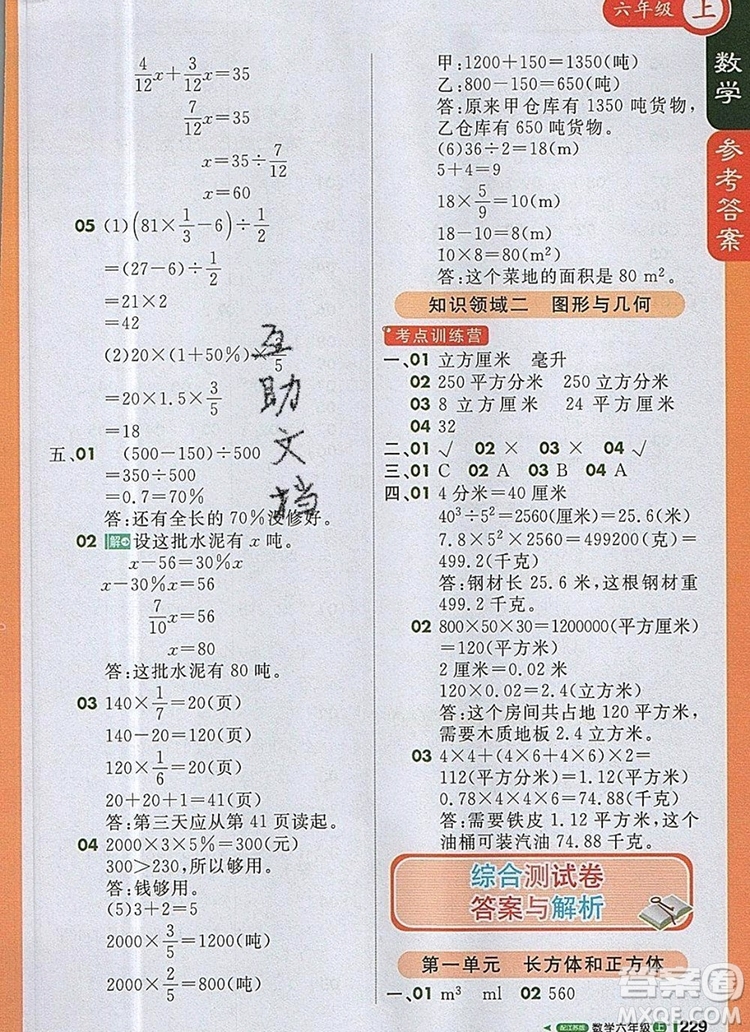 六年级 上
数学
参考答案
4/12x+3/12x=35
7/12x=35
x=35÷7/12
x=60
05 (1)(81×1/3-6)÷1/2
=(27-6)÷1/2
=21×2
=42
(2)20×(1+50%)×3/5
=20×1.5×3/5
=18
五、01 (500-150)÷500
=350÷500
=0.7=70%
答:还有全长的70%没修好。
02 解 设这批水泥有x吨。
x-56=30%x
x-30%x=56
7/10x=56
x=80
答:这批水泥有80吨。
03 140×1/7=20(页)
140-20=120(页)
120×1/6=20(页)
20+20+1=41(页)
答:第三天应从第41页读起。
04 2000×3×5%=300(元)
300>230,所以够用。
答:钱够用。
(5)3+2=5
2000×3/5=1200(吨)
2000×2/5=800(吨)
互助文档
甲:1200+150=1350(吨)
乙:800-150=650(吨)
答:原来甲仓库有1350吨货物,
乙仓库有650吨货物。
(6)36÷2=18(m)
5+4=9
18×5/9=10(m)
18-10=8(m)
10×8=80(m²)
答:这个菜地的面积是80 m²。
知识领域二 图形与几何
考点训练营
一、01 立方厘米 毫升
02 250平方分米 250立方分米
03 8立方分米 24平方分米
04 32
二、01 √ 02 × 03 × 04 √
三、01 C 02 A 03 B 04 A
四、01 4分米=40厘米
40³÷5²=2560(厘米)
7.8×5²×2560=499200(克)=
499.2(千克)
答:钢材长25.6米,这根钢材重
499.2千克。
02 800×50×30=1200000(平方厘米)
=120(平方米)
2厘米=0.02米
120×0.02=2.4(立方米)
答:这个房间共占地120平方米,
需要木质地板2.4立方米。
03 4×4+(4×6+4×6)×2=
112(平方分米)=1.12(平方米)
0.78×4×4×6=74.88(千克)
答:需要铁皮1.12平方米,这个
油桶可装汽油74.88千克。
综合测试卷
答案与解析
第一单元 长方体和正方体
一、01 m³ ml 02 560
配江苏版 数学六年级 上 229
答案圈